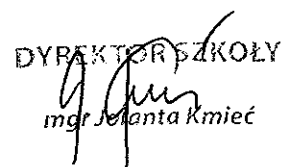 DYREKTOR SZKOŁY
mgr Jolanta Kmieć